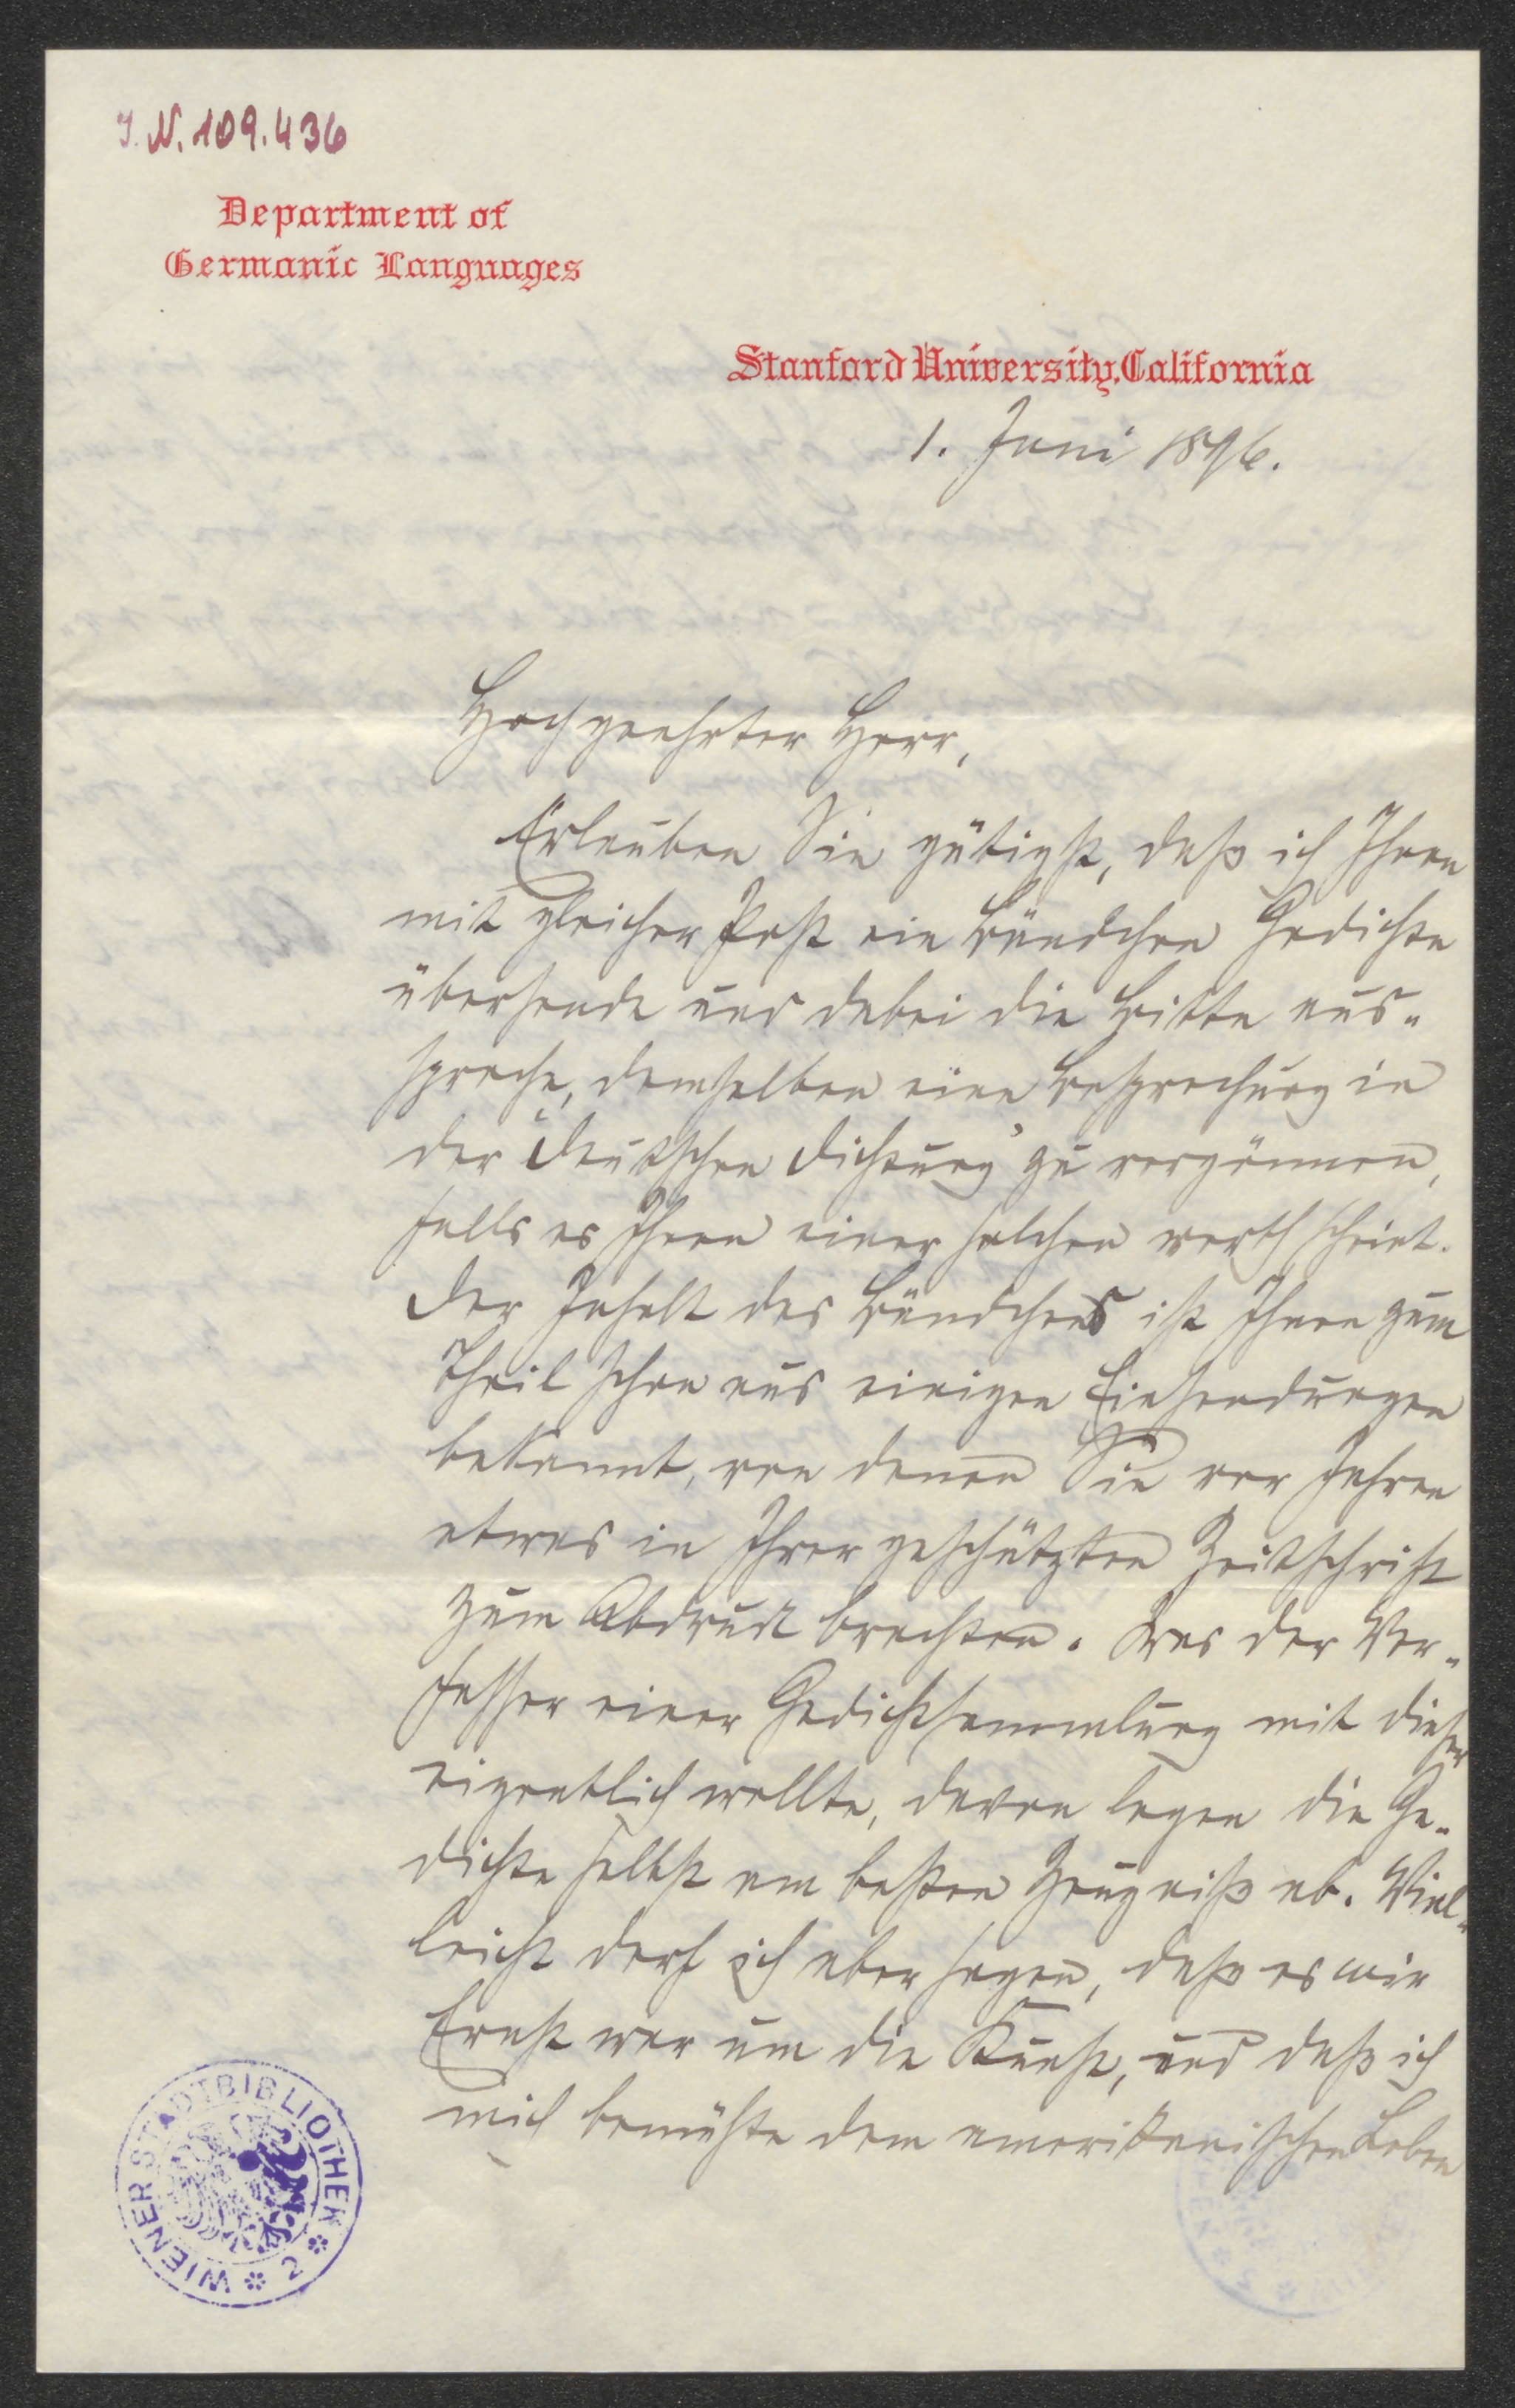 J.N. 109.436
Department of
Germanic Languages
Stanford University, California
1. Juni 1896.
Hochgeehrter Herr,
Erlauben Sie gütigst, daß ich Ihnen
mit gleicher Post ein Bändchen Gedichte
übersende und dabei die Bitte aus-
spreche, demselben eine Besprechung in
der "Deutschen Dichtung" zu vergönnen,
falls es Ihnen einer solchen werth scheint.
Der Inhalt des Bändchens ist Ihnen zum
Theil schon aus einigen Einsendungen
bekannt, von denen Sie vor Jahren
etwas in Ihrer geschätzten Zeitschrift
zum Abdruck brachten. Was der Ver-
fasser einer Gedichtsammlung mit dieser
eigentlich wollte, davon legen die Ge-
dichte selbst am besten Zeugniß ab. Viel-
leicht darf ich aber sagen, daß es mir
Ernst war um die Kunst, und daß ich
mich bemühte dem amerikanischen Leben
WIENER STADTBIBLIOTHEK * 2 *